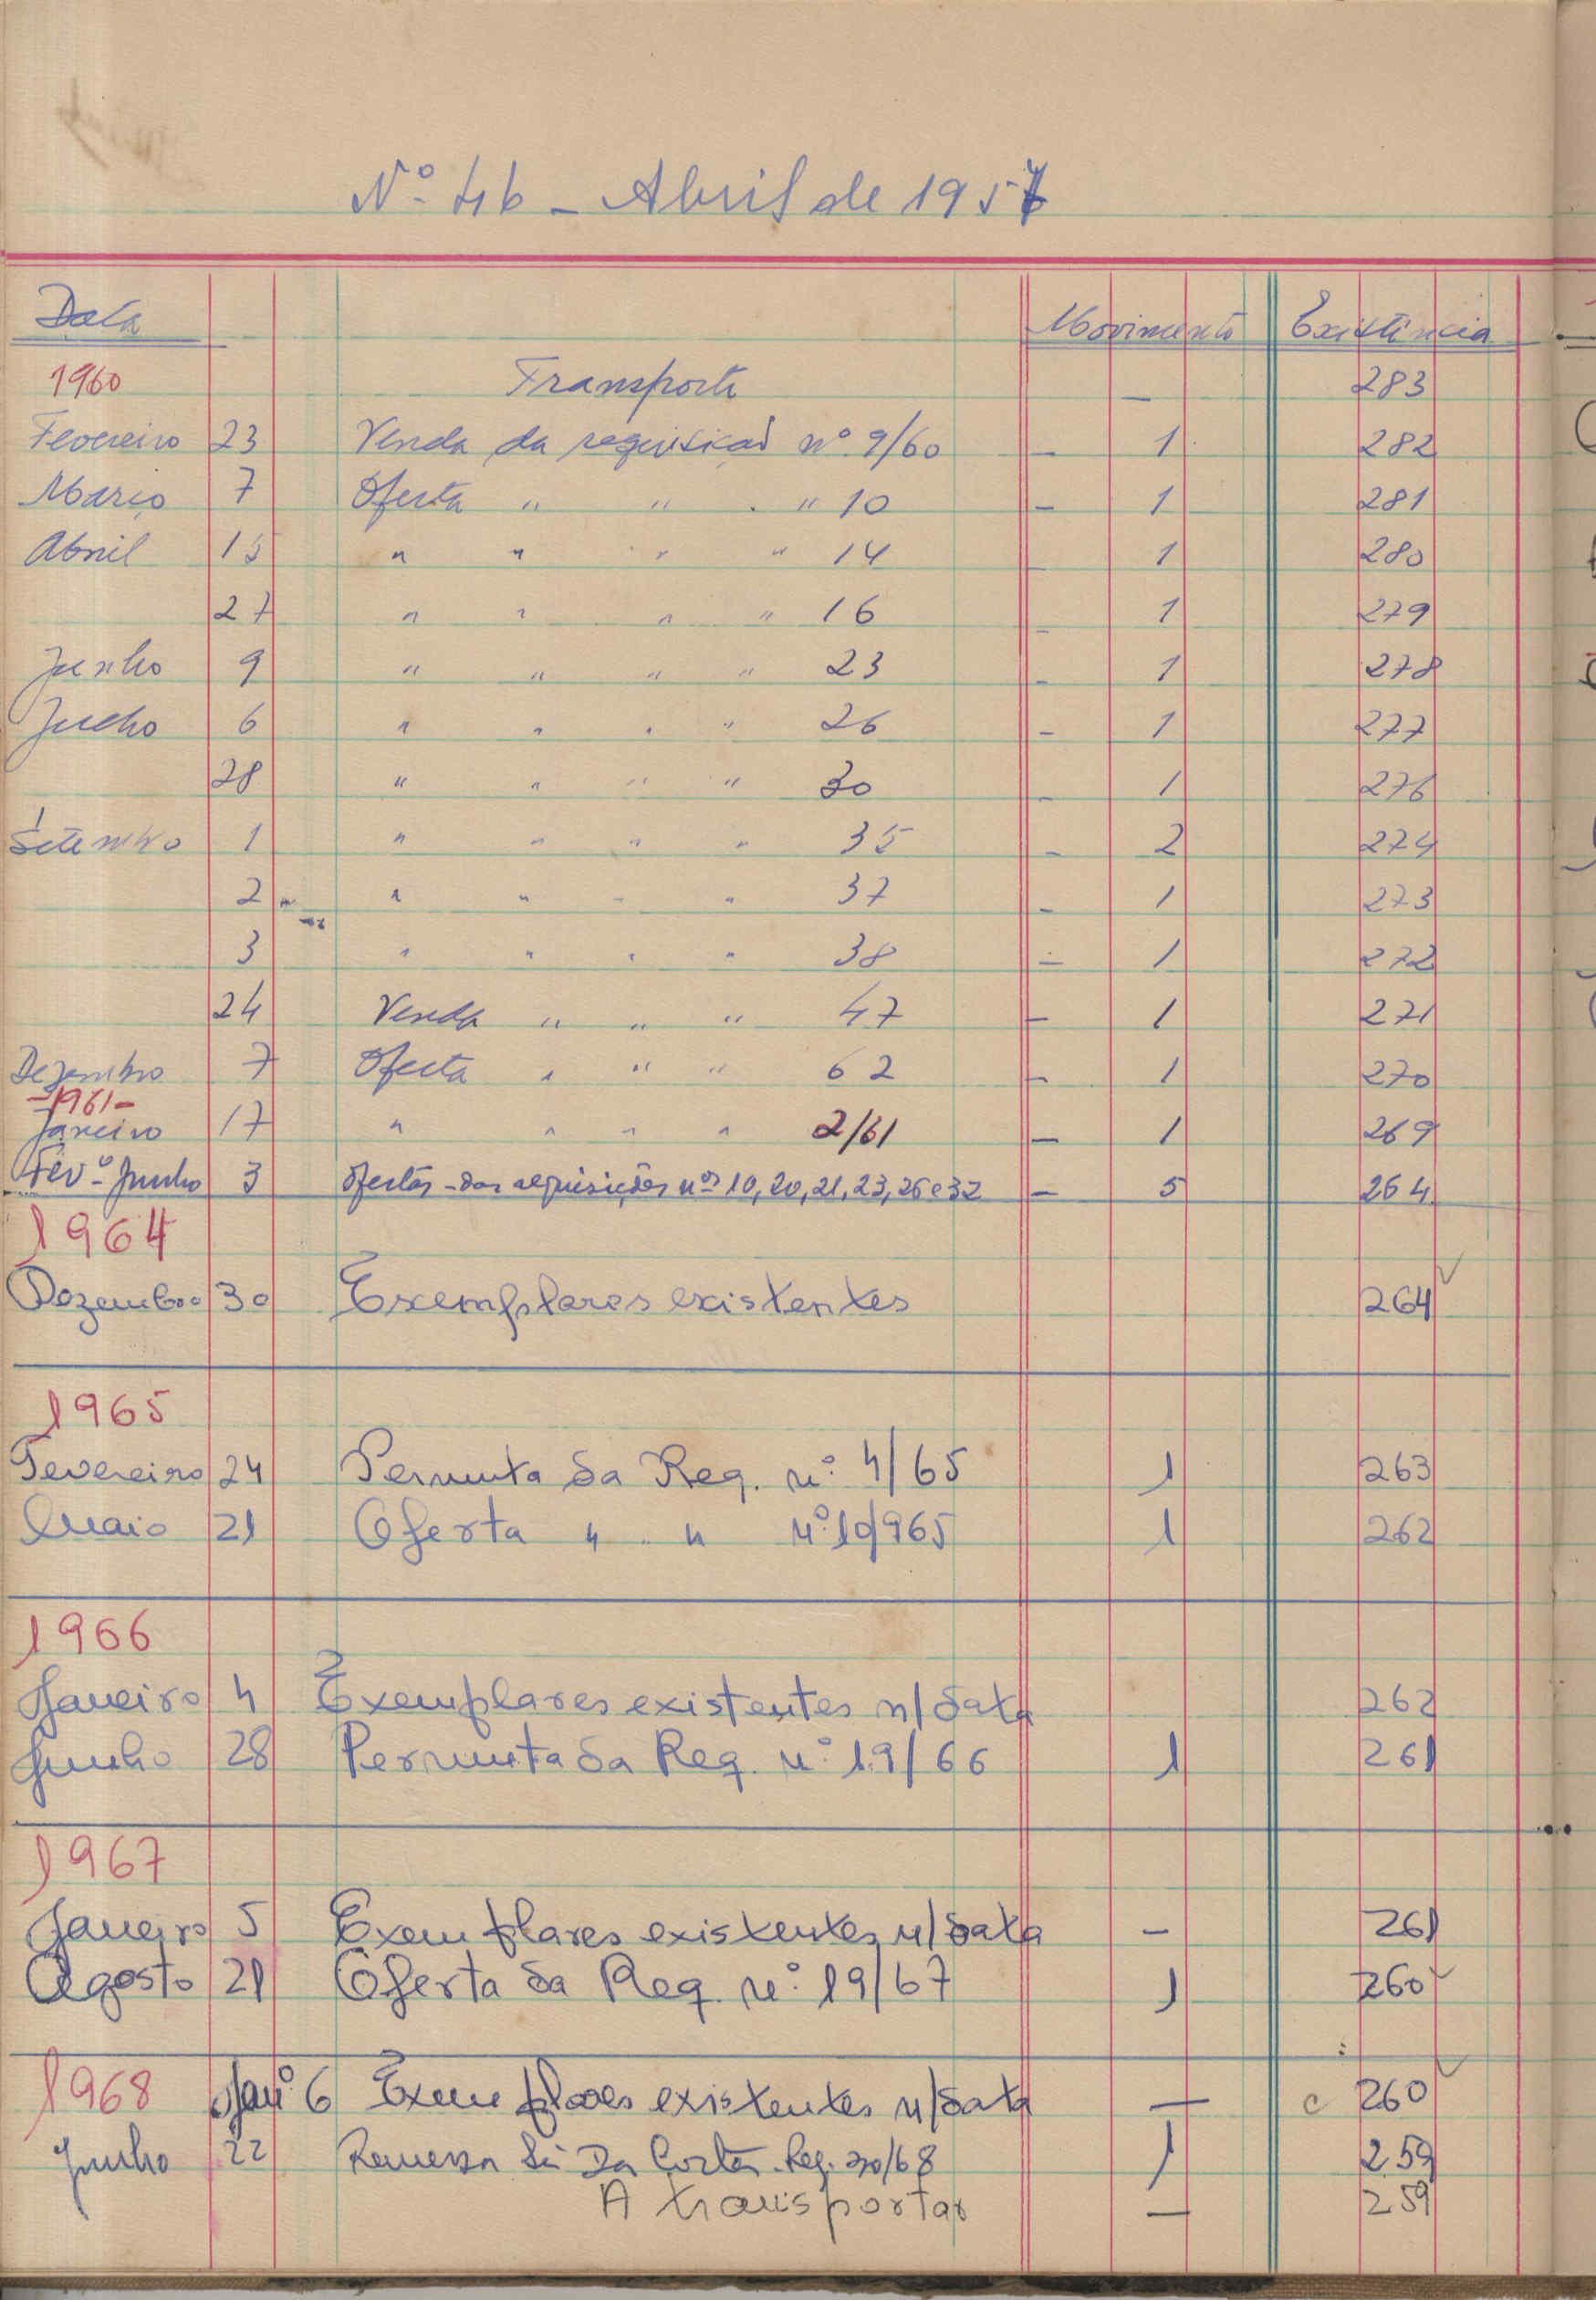 Nº 46 - Abril de 1957
Data Movimento Existência
1960 Transporte — 283
Fevereiro 23 Venda da requisição nº 9/60 - 1 282
Março 7 Oferta " " " 10 - 1 281
Abril 15 " " " " 14 - 1 280
27 " " " " 16 - 1 279
Junho 9 " " " " 23 - 1 278
Julho 6 " " " " 26 - 1 277
28 " " " " 30 - 1 276
Setembro 1 " " " " 35 - 2 274
2 " " " " 37 - 1 273
3 " " " " 38 - 1 272
24 Venda " " " 47 - 1 271
Dezembro 7 Oferta " " " 62 - 1 270
-1961-
Janeiro 17 " " " " 2/61 - 1 269
Fevº-Junho 3 Ofertas - das requisições nos 10, 20, 21, 23, 26 e 32 - 5 264
1964
Dezembro 30 Exemplares existentes 264
1965
Fevereiro 24 Permuta da Req. nº 4/65 1 263
Maio 21 Oferta " " Nº 10/965 1 262
1966
Janeiro 4 Exemplares existentes n/data 262
Junho 28 Permuta da Req. nº 19/66 1 261
1967
Janeiro 5 Exemplares existentes n/data - 261
Agosto 21 Oferta da Req. nº 19/67 1 260
1968 Janº 6 Exemplares existentes n/data — c 260
Junho 22 Remessa Req. 20/68 1 259
A transportar — 259